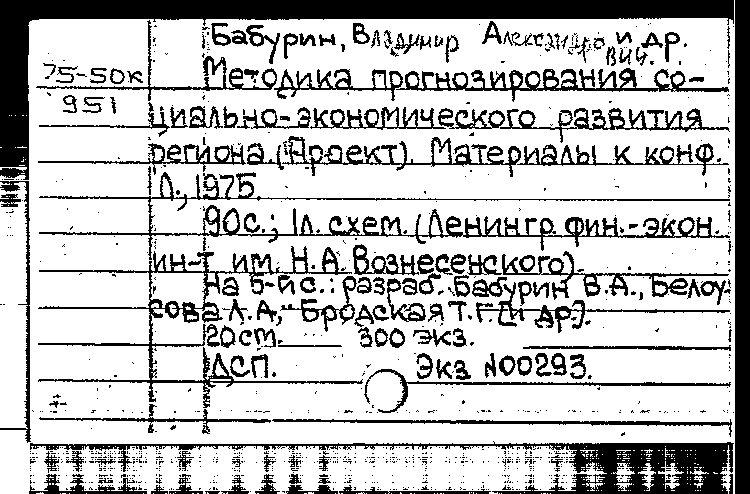 Бабурин, Владимир Александрович и др.
75-50к
951
Методика прогнозирования со-
циально-экономического развития
региона. (Проект). Материалы к конф.
Л., 1975.
90с.; 1л. схем. (Ленингр. фин.-экон.
ин-т им. Н.А. Вознесенского).
На 5-й с.: разраб. Бабурин В.А., Белоу-
сова Л.А., Бродская Т.Г. [и др.].
20 см. 300 экз.
ДСП. Экз N00293.